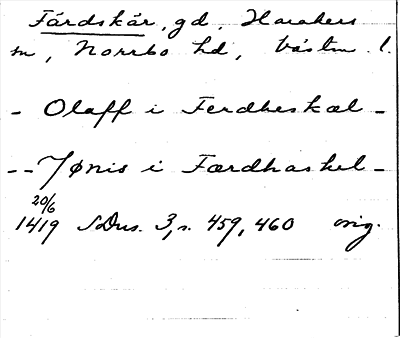 Färdskär, gd, Harakers
sn, Norrbo hd, Västm. l.
- Olaff i Ferdheskæl -
-- Jønis i Færdhaskel -
20/6
1419 SDns. 3, s. 459, 460 orig.